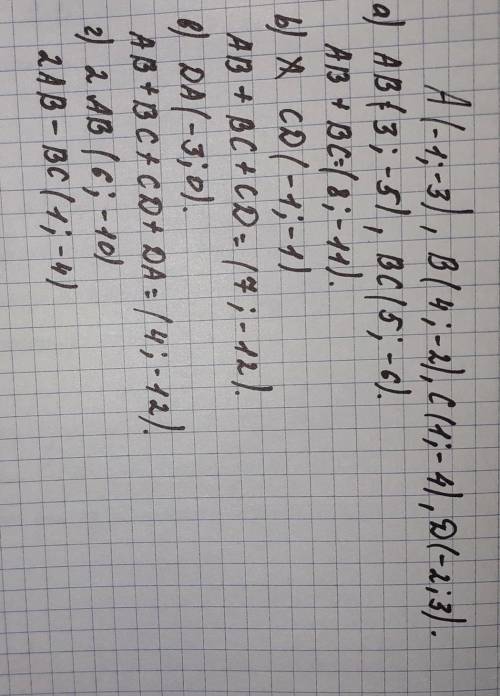 A(-1;-3), B(4;-2), C(1;-4), D(-2;3).
а) AB(3;-5), BC(5;-6).
AB + BC=(8;-11).
b) CD(-1;-1)
AB + BC + CD = (7;-12).
в) DA(-3;0).
AB + BC + CD + DA = (4;-12).
г) 2 AB(6;-10)
2AB - BC(1;-4)